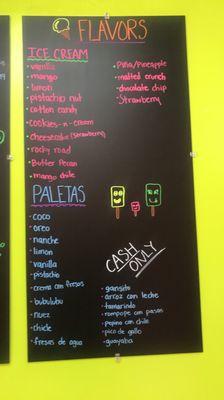 FLAVORS
ICE CREAM
- vanilla
- mango
- limon
- pistachio nut
- cotton candy
- cookies-n-cream
- cheesecake (strawberry)
- rocky road
- Butter Pecan
- mango chile
- Piña/Pineapple
- malted crunch
- chocolate chip
- Strawberry
PALETAS
- coco
- oreo
- nanche
- limon
- vanilla
- pistachio
- crema con fresas
- bubulubu
- nuez
- chicle
- fresas de agua
CASH
ONLY
- gansito
- arroz con leche
- tamarindo
- rompope con pasas
- pepino con chile
- pico de gallo
- guayaba